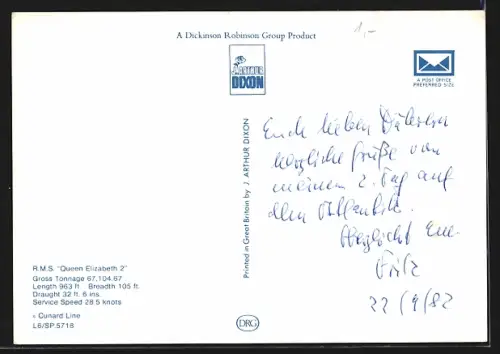 A Dickinson Robinson Group Product
1,-
J. ARTHUR
DIXON
A POST OFFICE
PREFERRED SIZE
Printed in Great Britain by J. ARTHUR DIXON
Euch lieben
herzliche Grüße von
meinem 2. Tag auf
dem Atlantik.
Herzlichst Eure
Fritz
22/9/82
R.M.S. "Queen Elizabeth 2"
Gross Tonnage 67,104.67
Length 963 ft Breadth 105 ft.
Draught 32 ft. 6 ins.
Service Speed 28.5 knots
Cunard Line
L6/SP.5718
DRG